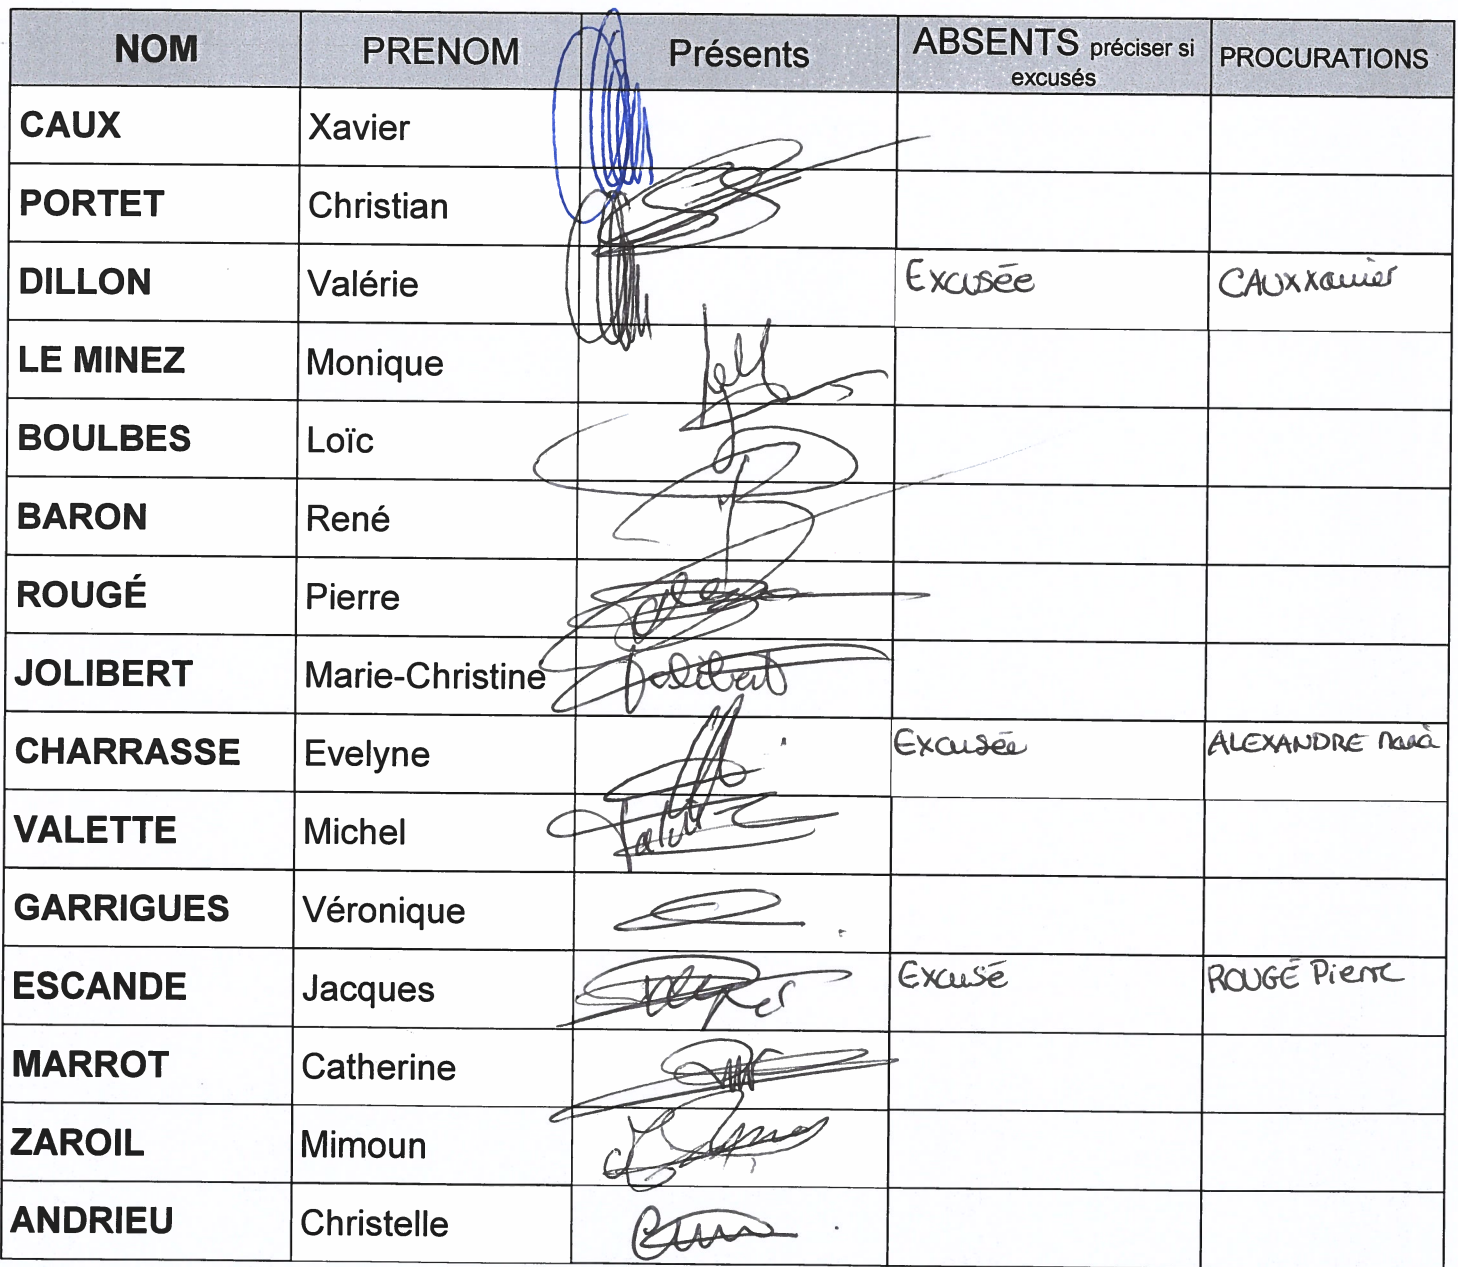 NOM PRENOM Présents ABSENTS préciser si excusés PROCURATIONS
CAUX Xavier
PORTET Christian
DILLON Valérie Excusée CAUX Xavier
LE MINEZ Monique
BOULBES Loïc
BARON René
ROUGÉ Pierre
JOLIBERT Marie-Christine Jolibert
CHARRASSE Evelyne Excusée ALEXANDRE
VALETTE Michel
GARRIGUES Véronique
ESCANDE Jacques Excusé ROUGÉ Pierre
MARROT Catherine
ZAROIL Mimoun
ANDRIEU Christelle